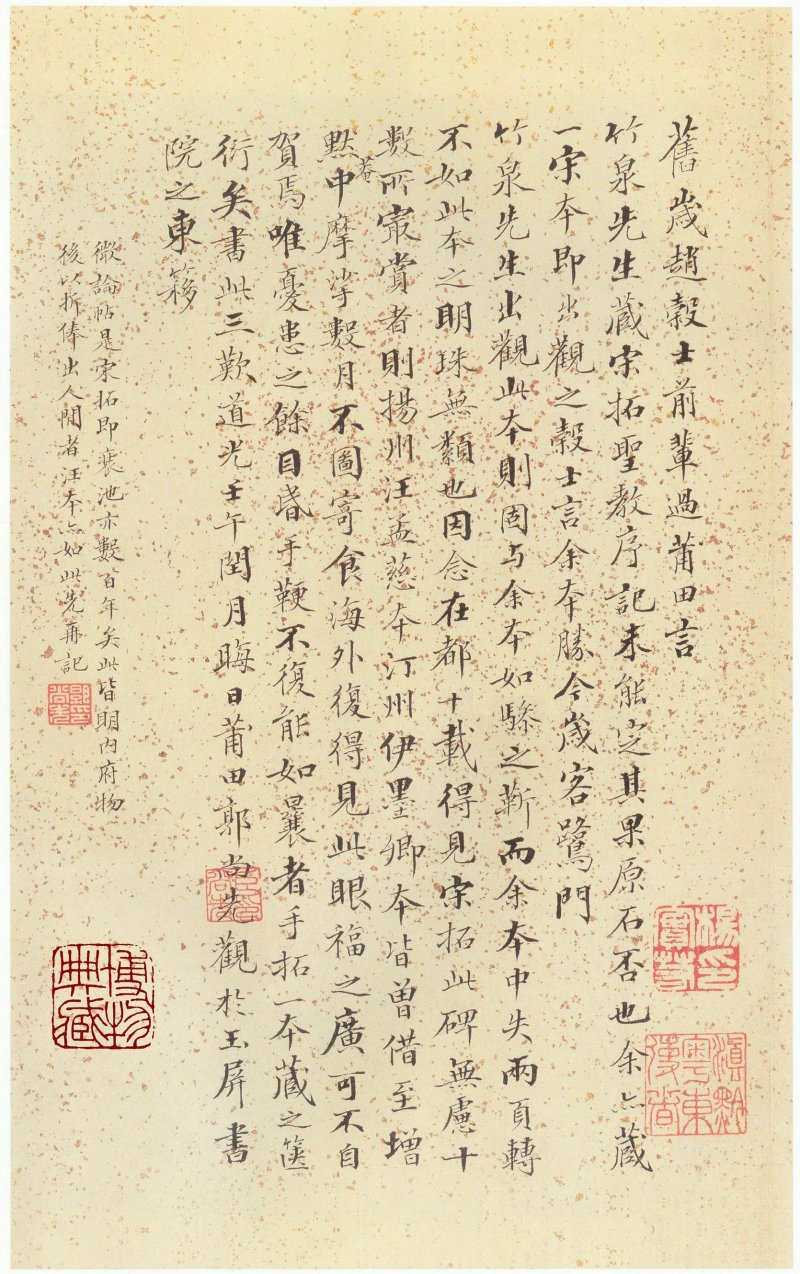 舊歲趙穀士前輩過莆田言
竹泉先生藏宋拓聖教序記未能定其果原石否也余亦藏
一宋本即出觀之穀士言余本勝今歲客鷺門
竹泉先生出觀此本則固与余本如驂之靳而余本中失兩頁轉
不如此本之明珠無纇也因念在都十載得見宋拓此碑無慮十
數所宻賞者則揚州汪孟慈本汀州伊墨卿本皆曾借至增
默菴中摩挲數月不圖寄食海外復得見此眼福之廣可不自
賀焉唯憂患之餘目昏手鞕不復能如曩者手拓一本藏之篋
衍矣書此三歎道光壬午閏月晦日莆田郭尚先觀於玉屏書
院之東簃
微論帖是宋拓即裝池亦數百年矣此皆明內府物
後以折俸出人間者汪本亦如此先再記
博物
典藏